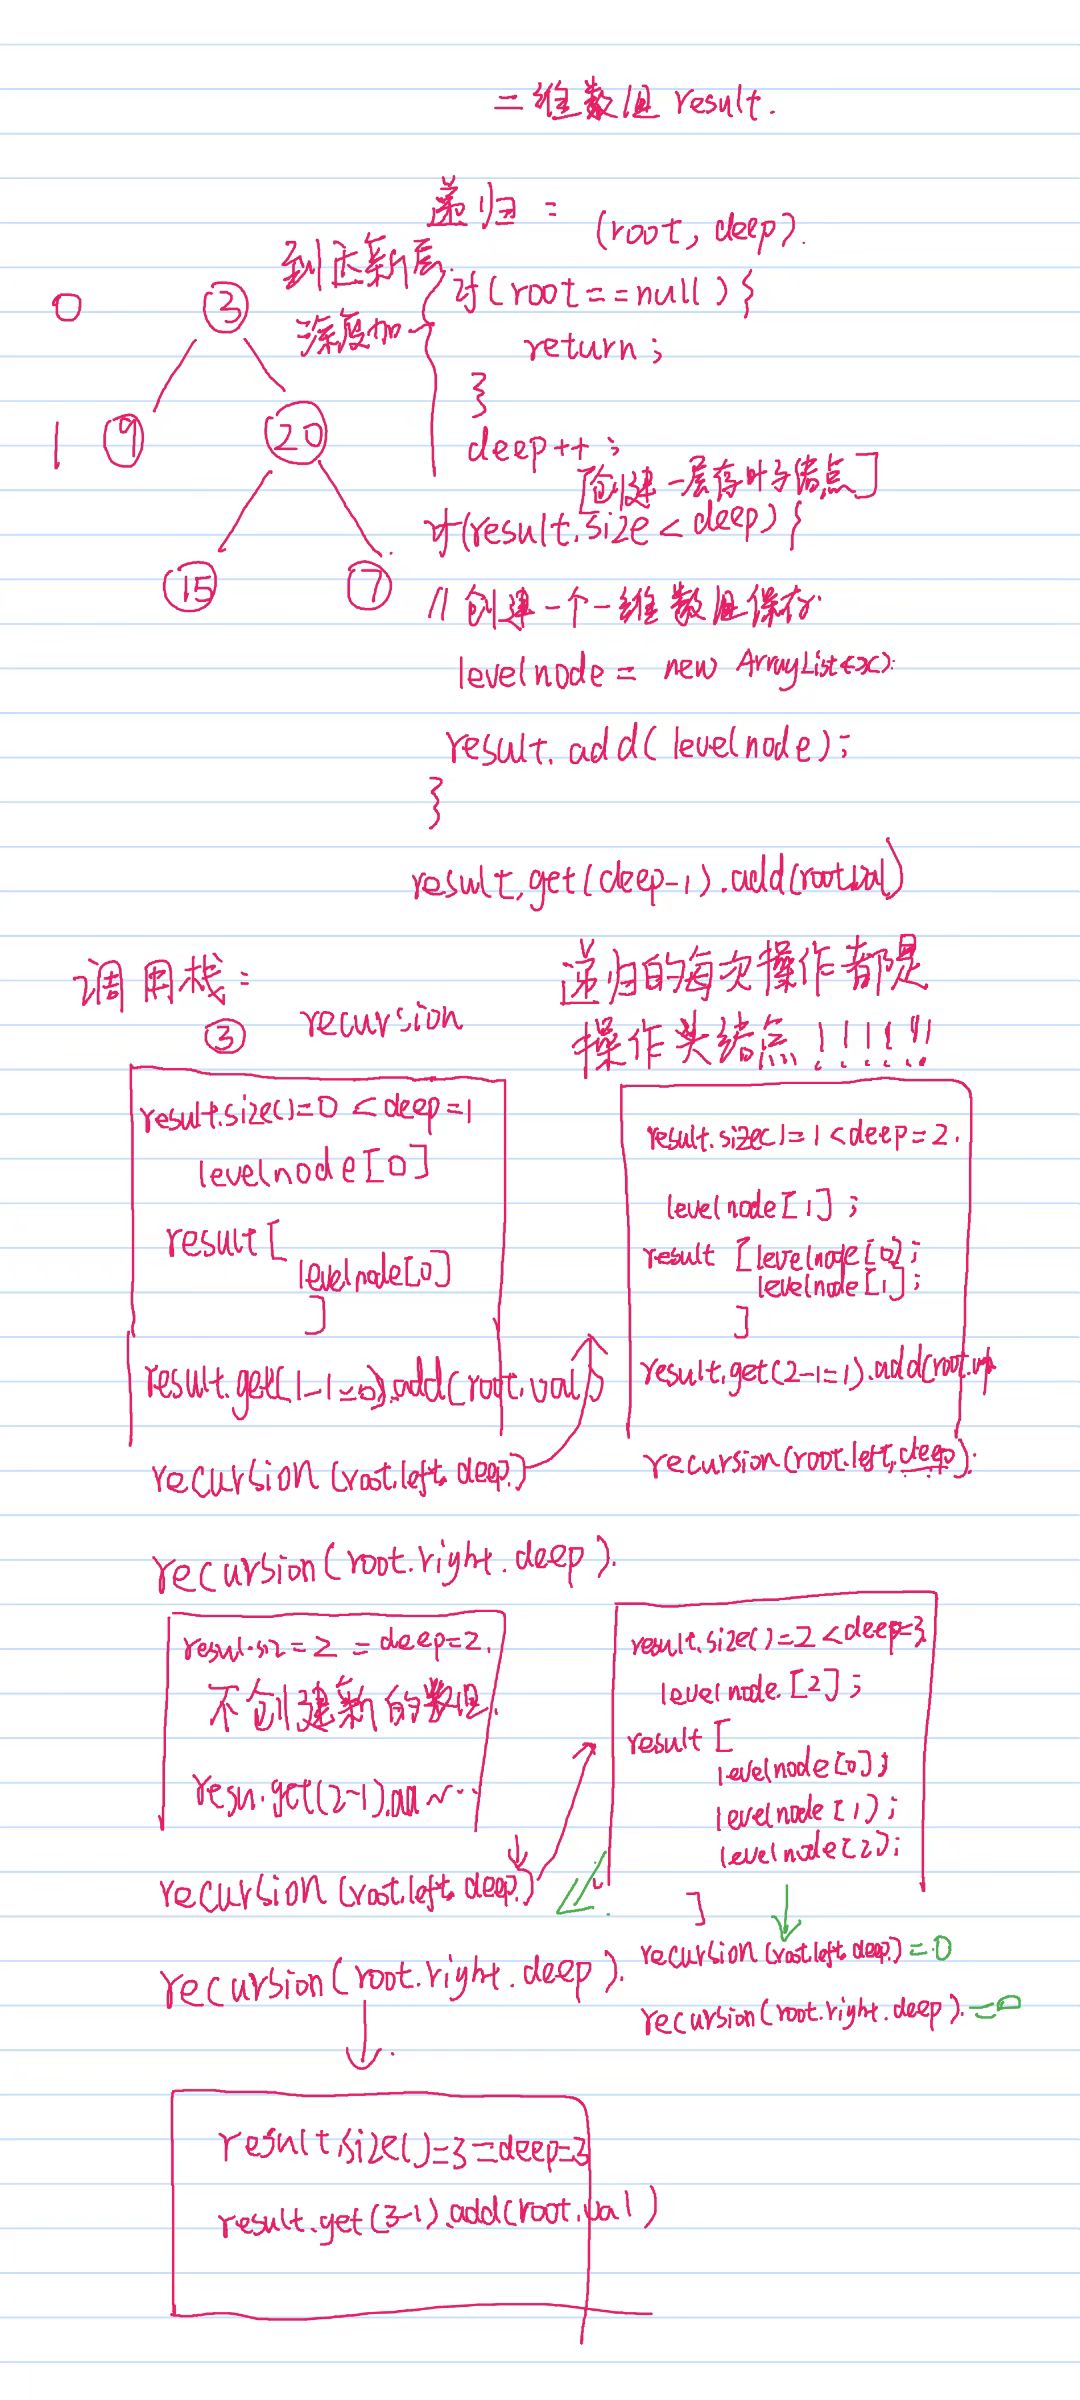 二维数组 result.
递归:
(root, deep).
到达新层.
深度加一
0
3
if(root==null){
return;
}
1
9
20
deep++;
[创建一层存叶子结点]
if(result.size<deep){
15
7
//创建一个一维数组保存.
levelnode = new ArrayList<>():
result.add(levelnode);
}
result.get(deep-1).add(root.val)
调用栈:
③ recursion
递归的每次操作都是
操作头结点!!!!!!
result.size()=0 <deep=1
levelnode[0]
result[
levelnode[0]
]
result.get(1-1=0).add(root.val)
recursion(root.left.deep.)
result.size()=1<deep=2.
levelnode[1];
result [levelnode[0];
levelnode[1];
]
result.get(2-1=1).add(root.va
recursion(root.left.deep).
recursion(root.right.deep).
resul.siz=2 =deep=2.
不创建新的数组.
resu.get(2-1).aa~..
recursion(root.left.deep.)
recursion(root.right.deep).
result.size()=2<deep=3
levelnode.[2];
result[
levelnode[0];
levelnode[1);
levelnode[2);
]
recursion(root.left.deep.)=0
recursion(root.right.deep).=0
result.size()=3=deep=3
result.get(3-1).add(root.val)